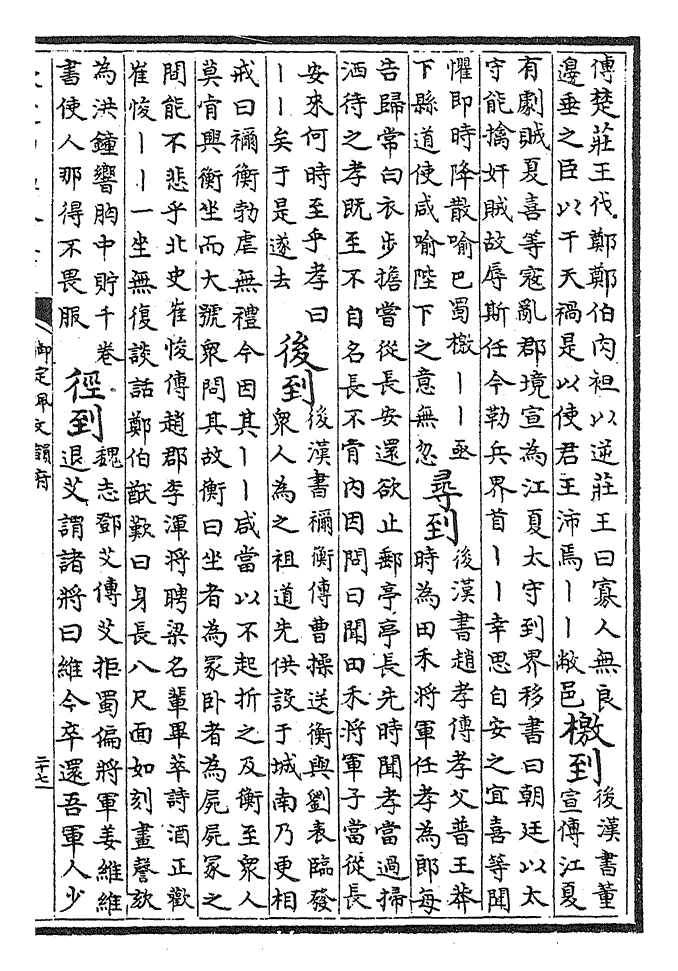 傳楚莊王伐鄭鄭伯肉袒以逆莊王曰寡人無良
邊垂之臣以干天禍是以使君王沛焉丨丨敝邑
檄到
後漢書董
宣傳江夏
有劇賊夏喜等寇亂郡境宣為江夏太守到界移書曰朝廷以太
守能擒奸賊故辱斯任今勒兵界首丨丨幸思自安之宜喜等聞
懼即時降散喻巴蜀檄丨丨亟
下縣道使咸喻陛下之意無忽
尋到
後漢書趙孝傳孝父普王莽
時為田禾將軍任孝為郎每
告歸常白衣步擔嘗從長安還欲止郵亭亭長先時聞孝當過掃
洒待之孝既至不自名長不肯內因問曰聞田禾將軍子當從長
安來何時至乎孝曰
丨丨矣于是遂去
後到
後漢書禰衡傳曹操送衡與劉表臨發
眾人為之祖道先供設于城南乃更相
戒曰禰衡勃虐無禮今因其丨丨咸當以不起折之及衡至眾人
莫肯興衡坐而大號眾問其故衡曰坐者為冢卧者為屍屍冢之
間能不悲乎北史崔㥄傳趙郡李渾將聘梁名輩畢萃詩酒正歡
崔㥄丨丨一坐無復談話鄭伯猷歎曰身長八尺面如刻畫謦欬
為洪鐘響胸中貯千卷
書使人那得不畏服
徑到
魏志鄧艾傳艾拒蜀偏將軍姜維維
退艾謂諸將曰維今卒還吾軍人少
御定佩文韻府
二十七